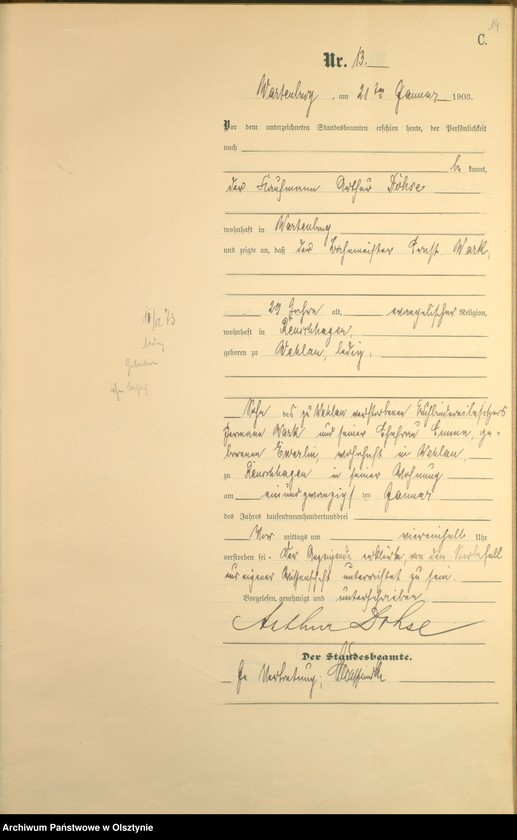 14
C.
Nr. 13.
Wartenburg, am 21ten Januar 1903.
Vor dem unterzeichneten Standesbeamten erschien heute, der Persönlichkeit
nach
be kannt,
der Kaufmann Arthur Dohse
wohnhaft in Wartenburg
und zeigte an, daß der Bahnmeister Ernst Wark,
29 Jahre alt, evangelischer Religion,
wohnhaft in
geboren zu Wehlau, ledig,
Sohn des zu Wehlau verstorbenen
Hermann Wark und seiner Ehefrau Emma, ge-
borenen Ewerlin, wohnhaft in Wehlau,
zu in seiner Wohnung
am einundzwanzigsten Januar
des Jahres tausendneunhundertunddrei
Vor mittags um viereinhalb Uhr
verstorben sei. Der Anzeigende erklärte, von dem Sterbefall
aus eigener Wissenschaft unterrichtet zu sein.
Vorgelesen, genehmigt und unterschrieben
Arthur Dohse
Der Standesbeamte.
In Vertretung,
ledig
Archiwum Państwowe w Olsztynie